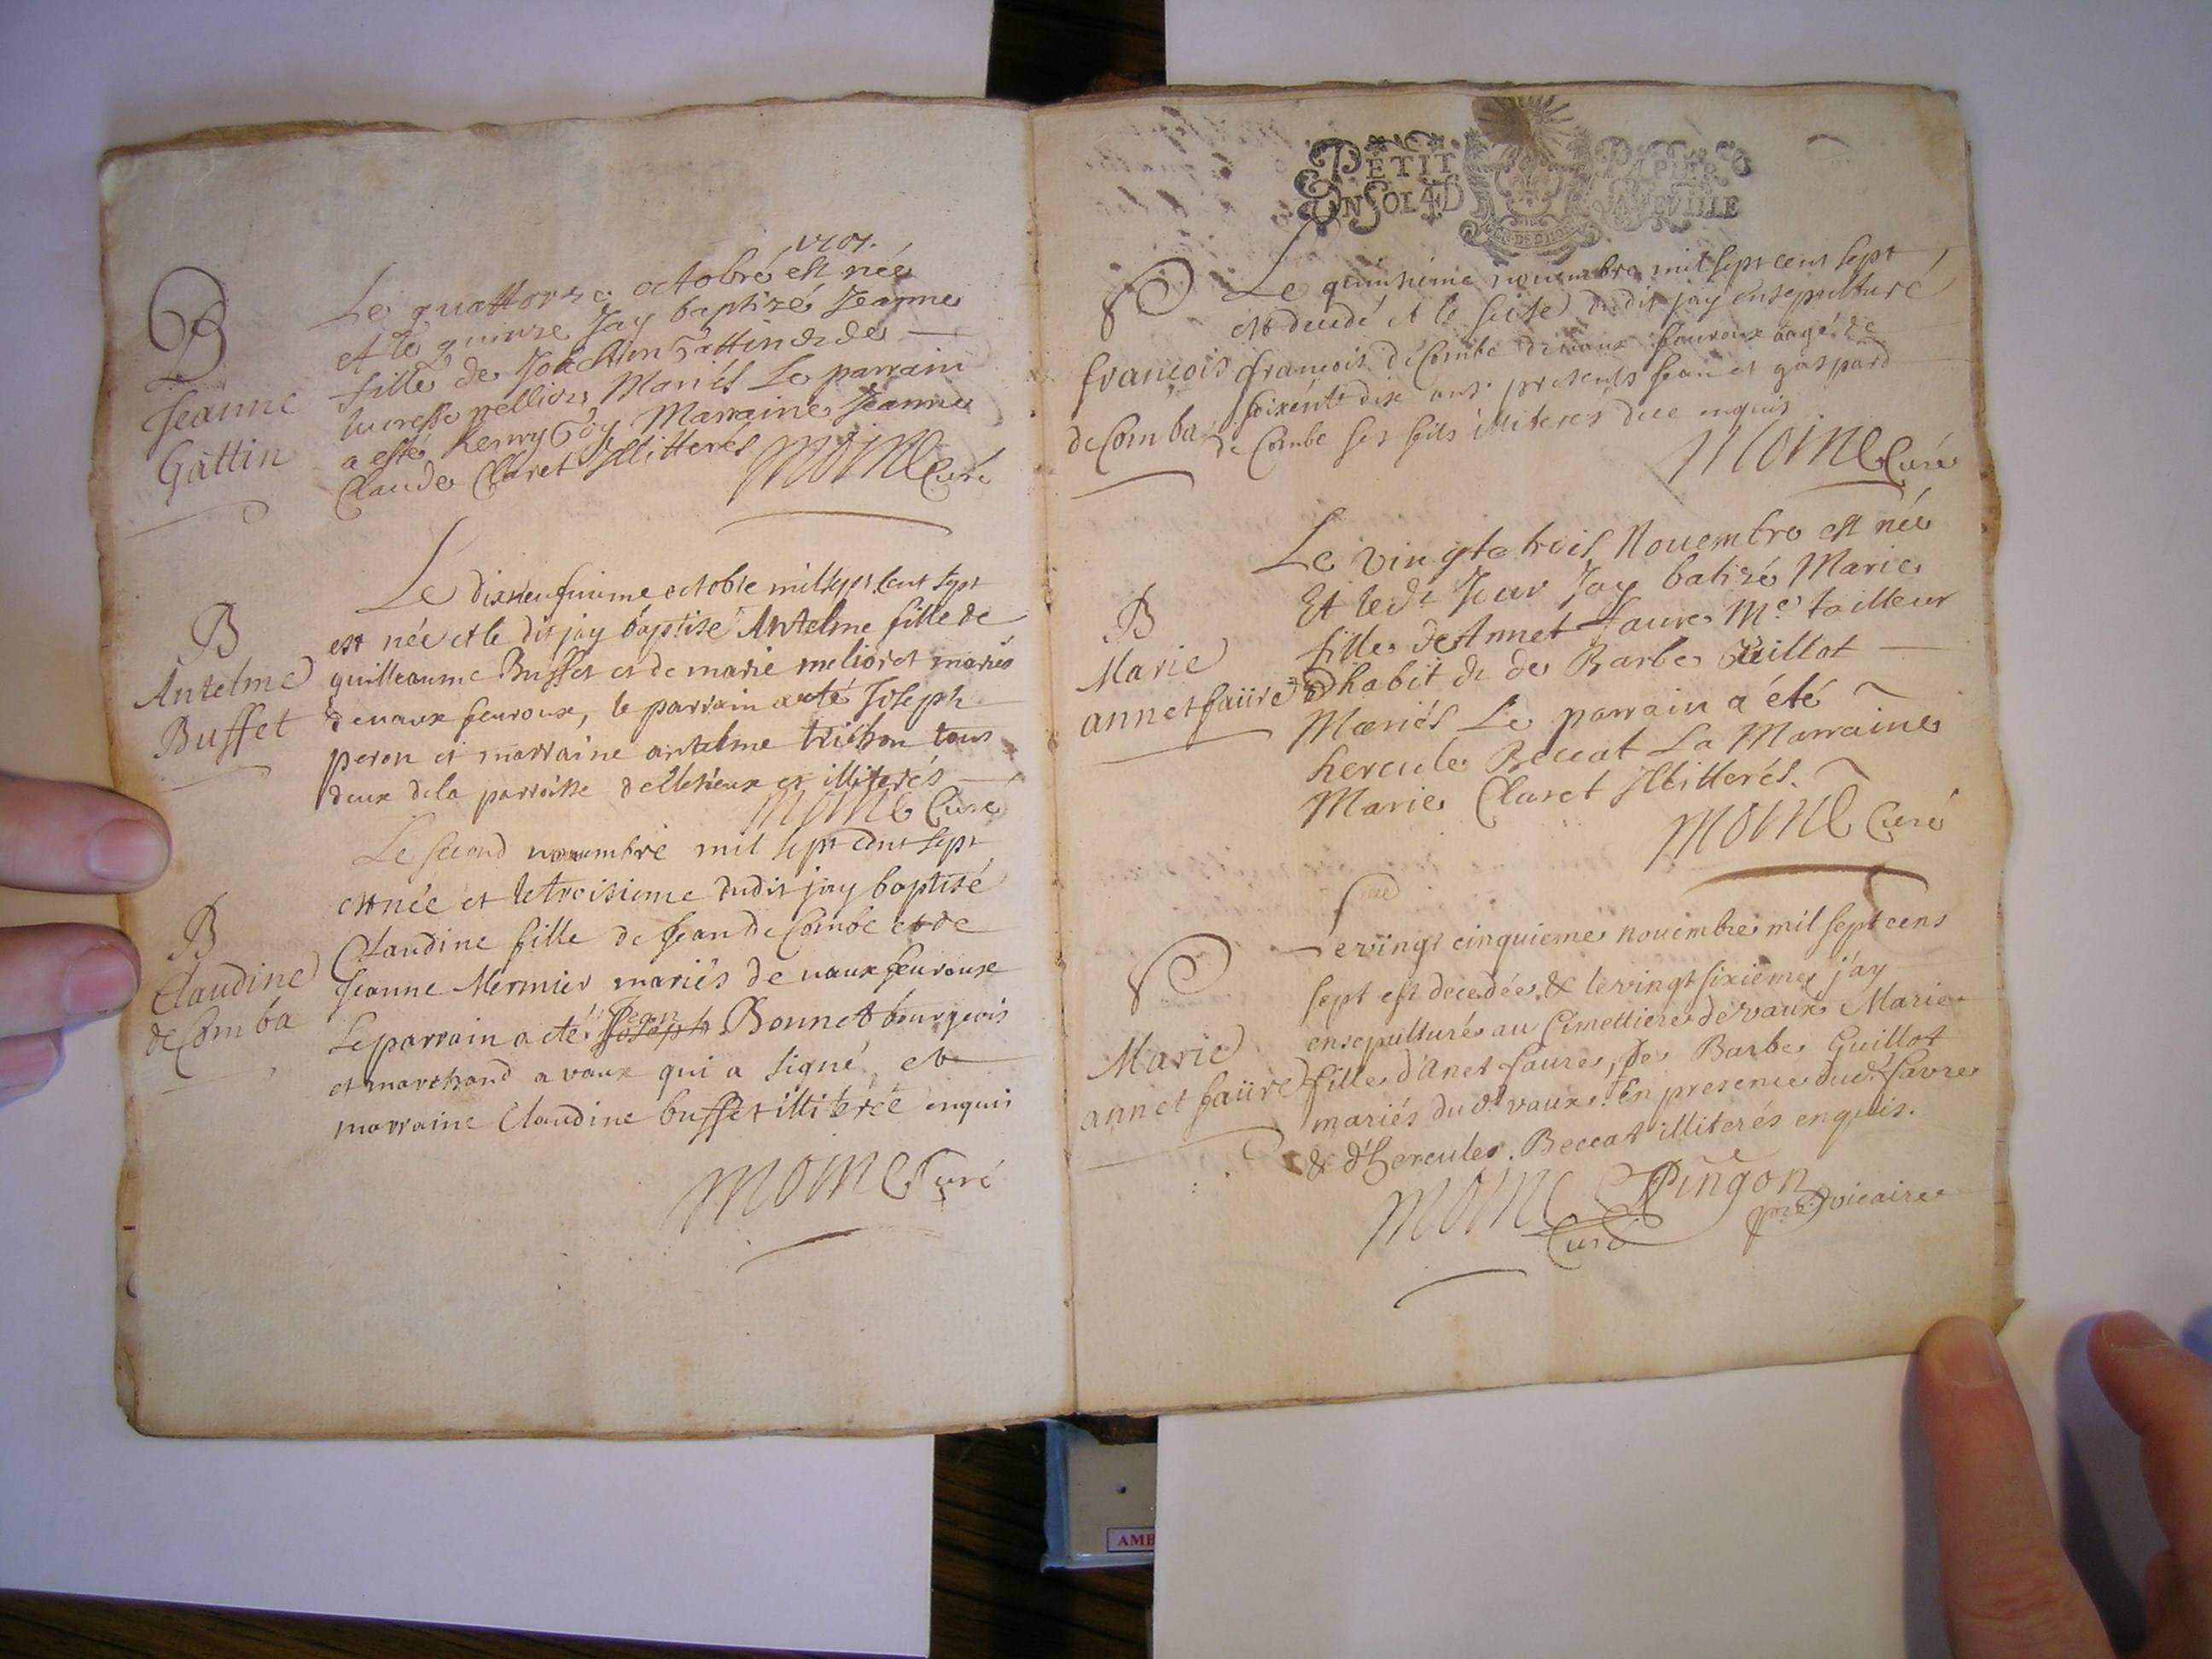 1707.
B
Jeanne
Gattin
Le quattorze octobre est née
et le quinze Jay baptizé Jeanne
fille de Joachim Gattin & de
lucresse pellion Mariés Le parrain
a esté henry Goy Marraine Jeanne
Claude Claret Illitterés
Moine Curé
B
Antelme
Buffet
Le dixneufuieme octobre mil sept cent sept
est née et le dit jay baptisé Antelme fille de
guilleaume Buffet et de marie melioret mariés
de vaux feuroux, le parrain a eté Joseph
peron et marraine antelme trichon tous
deux de la parroisse et illiterés
Moine Curé
B
Claudine
de Comba
Le second novembre mil sept cent sept
est née et le troisieme dudit jay baptisé
Claudine fille de Jean de Combe et de
Jeanne Mermier mariés de vaux feuroux
Le parrain a eté Joseph Jean Bonnet bourgeois
et marchand a vaux qui a signé, et
marraine Claudine buffet illiterée enquis
Moine Curé
PETIT PAPIER
UN SOL 4 D LA FEVILLE
françois
de Comba
Le quinsieme nouembre mil sept cent sept
est decedé et le seise dudit jay ensepulturé
francois de Combe de vaux feuroux aagé de
soixente dix ans presents Jean et gaspard
de Combe ses fils illiterés de ce enquis
Moine Curé
B
Marie
annet faüre
Le vingt e trois Nouembre est née
Et le dt Jour Jay batizé Marie
fille de Annet faure Me tailleur
dhabit & de Barbe Guillot
Mariés Le parrain a été
hercule Beccat La Marraine
Marie Claret Illitterés.
Moine Curé
Marie
annet faüre
Le vingt cinquieme nouembre mil sept cens
sept est decedée, & le vingt sixieme j'ay
ensepulturé au Cimettiere de vaux Marie
fille d'Anet faure, & de Barbe Guillot
mariés du dt vaux. En presence dud. favre
& d'hercule Beccat illiterés enquis.
Moine Curé
Pingon
vicaire